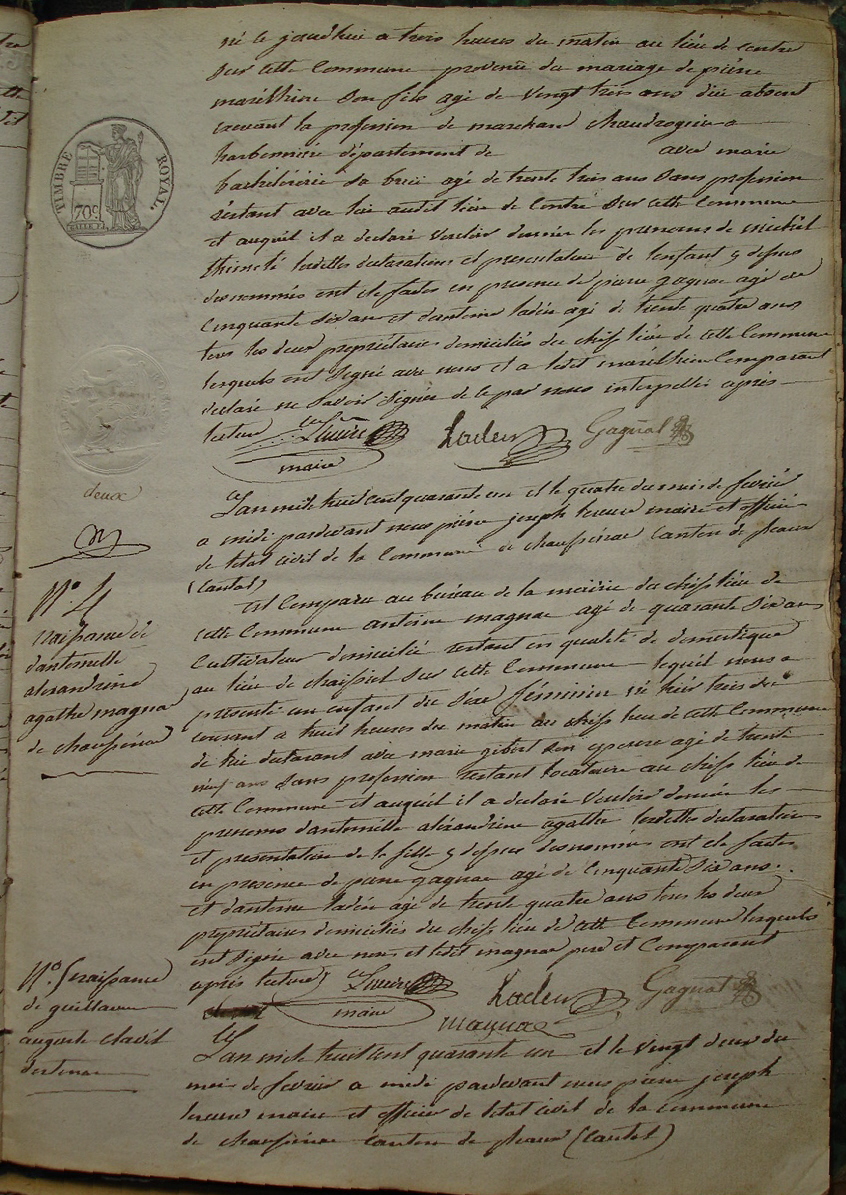 né le jourdhui a trois heures du matin au lieu de contre
sur cette Commune provenu du mariage de pierre
son fils agé de vingt trois ans dit absent
la profession de marchand chaudronnier a
departement de avec marie
agé de trente trois ans sans profession
restant avec lui audit lieu de Contre sur cette Commune
et auquel il a declaré vouloir donner les prenoms de michel
lesdittes declarations et presentation de l'enfant y dessus
denommés ont eté faites en presence de pierre gagnac agé de
Cinquante six ans et d'antoine ladeu agé de trente quatre ans
tous les deux propriétaires domiciliés du chef lieu de cette Commune
lesquels ont signé avec nous et a ledit Comparant
declaré ne savoir signer de ce par nous interpellé apres
lecture
maire
Ladeu
Gagnal
TIMBRE ROYAL.
70c
deux
L'an mil huit cent quarante un et le quatre du mois de fevrié
a midi pardevant nous pierre joseph maire et officié
de letat civil de la Commune de chaussenac Canton de pleaux
(Cantal)
N° 4
naissance de
d'antoinette
alexandrine
agathe magnac
de chaussenac
Est Comparu au bureau de la mairie du chef lieu de
cette Commune antoine magnac agé de quarante six ans
Cultivateur domicilié restant en qualité de domestique
au lieu de sur cette Commune lequel nous a
presenté un enfant du sexe féminin né hier trois du
courant a huit heures du matin au chef lieu de cette Commune
de lui declarant avec marie gibert son epouse agé de trente
neuf ans sans profession restant locataire au chef lieu de
cette Commune et auquel il a declaré vouloir donner les
prenoms d'antoinette alexandrine agathe lesdittes declarations
et presentation de la fille y dessus denommés ont eté faites
en presence de pierre gagnac agé de Cinquante six ans.
et d'antoine ladeu agé de trente quatre ans tous les deux
propriétaires domiciliés du chef lieu de cette Commune lesquels
ont signé avec nous et ledit magnac pere et Comparant
apres lecture
maire
Ladeu
Gagnal
magnac
N° 5 naissance
de guillaume
auguste
L'an mil huit cent quarante un et le vingt deux du
mois de fevrier a midi pardevant nous pierre joseph
maire et officier de letat civil de la commune
de chaussenac canton de pleaux (Cantal)